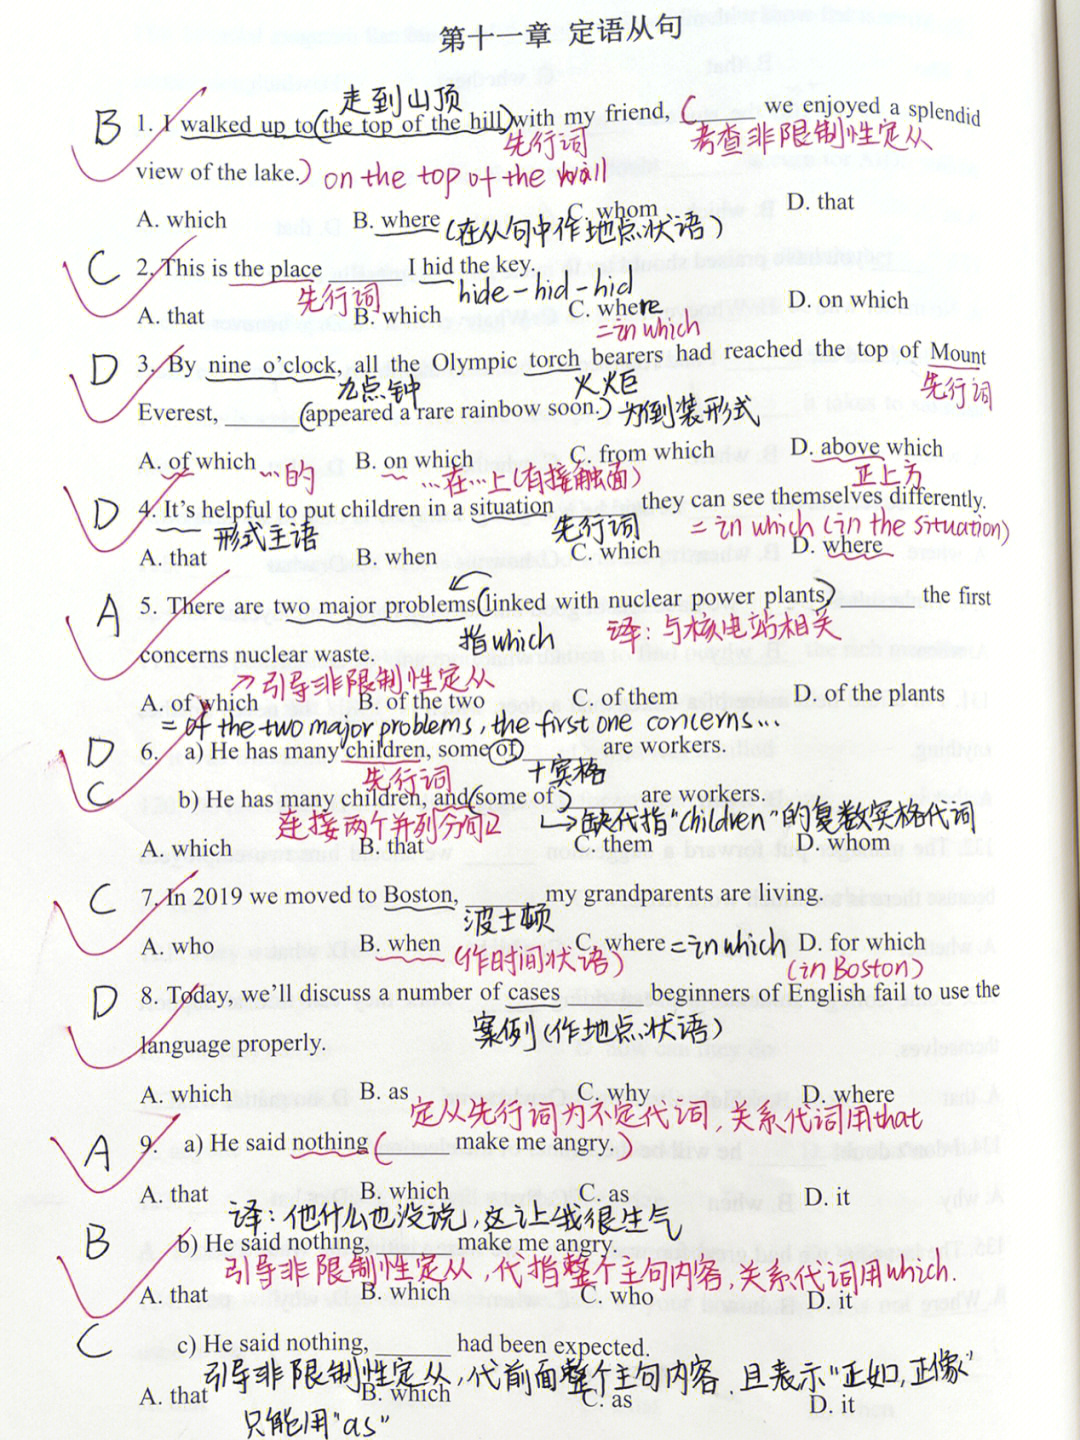 第十一章 定语从句
走到山顶
B 1. I walked up to (the top of the hill) with my friend, (______ we enjoyed a splendid
先行词 考查非限制性定从
view of the lake.) on the top of the wall
A. which B. where C. whom D. that
(在从句中作地点状语)
C 2. This is the place ______ I hid the key.
先行词 hide-hid-hid
A. that B. which C. where D. on which
=in which
D 3. By nine o'clock, all the Olympic torch bearers had reached the top of Mount
九点钟 火炬 先行词
Everest, ______ (appeared a rare rainbow soon.) 为倒装形式
A. of which B. on which C. from which D. above which
…的 …在…上(有接触面) 正上方
D 4. It's helpful to put children in a situation ______ they can see themselves differently.
形式主语 先行词 = in which (in the situation)
A. that B. when C. which D. where
A 5. There are two major problems (linked with nuclear power plants,) ______ the first
指which 译：与核电站相关
concerns nuclear waste.
→引导非限制性定从
A. of which B. of the two C. of them D. of the plants
= of the two major problems, the first one concerns...
D 6. a) He has many children, some of ______ are workers.
先行词 +宾格
C b) He has many children, and (some of) ______ are workers.
连接两个并列分句 →缺代指"children"的复数宾格代词
A. which B. that C. them D. whom
C 7. In 2019 we moved to Boston, ______ my grandparents are living.
波士顿
A. who B. when C. where =in which D. for which
(作时间状语) (in Boston)
D 8. Today, we'll discuss a number of cases ______ beginners of English fail to use the
案例(作地点状语)
language properly.
A. which B. as C. why D. where
定从先行词为不定代词，关系代词用that
A 9. a) He said nothing (______ make me angry.)
A. that B. which C. as D. it
译：他什么也没说，这让我很生气
B b) He said nothing, ______ make me angry.
引导非限制性定从，代指整个主句内容，关系代词用which.
A. that B. which C. who D. it
C c) He said nothing, ______ had been expected.
引导非限制性定从，代前面整个主句内容，且表示"正如，正像"
A. that B. which C. as D. it
只能用"as"